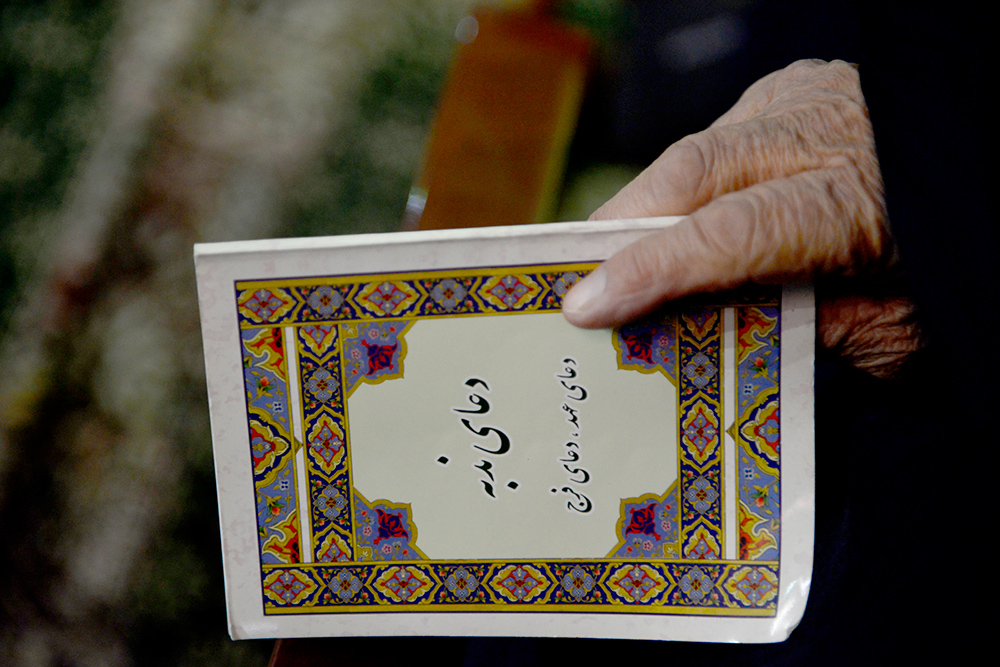 دعای ندبه
دعای عهد، دعای فرج